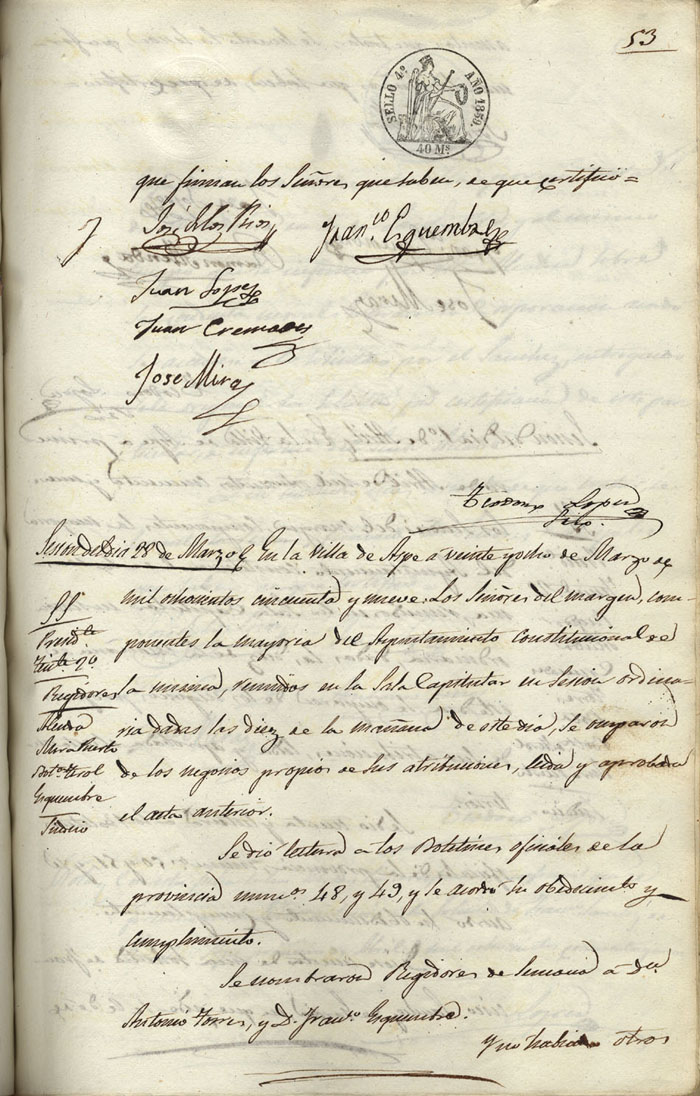 53
SELLO 4º AÑO 1859.
40 Ms
que firman los Señores que saben, de que certifico=
José de los Rios
Franco Esquembre
Juan Lopez
Juan Cremades
Jose Mira
Teodoro Lopez
Srio.
Sesion del dia 28 de Marzo En la Villa de Aspe a veinte y ocho de Marzo de
mil ochocientos cincuenta y nueve: Los Señores del margen, com-
ponentes la mayoria del Ayuntamiento Constitucional de
la misma, reunidos en la Sala Capitular en Sesion ordina-
ria dadas las diez de la mañana de este dia, se ocuparon
de los negocios propios de sus atribuciones, leida y aprobada
el acta anterior.
SS
Presidte
Tente 2º
Regidores
Almodra
Mira Puerto
Botella
Esquembre
Se dió lectura a los Boletines oficiales de la
provincia numos 48, y 49, y se acordó su obedecimto y
cumplimiento.
Se nombraron Regidores de Semana á Dn
Antonio Torres, y D. Franco Esquembre.
Y no habiendo otros